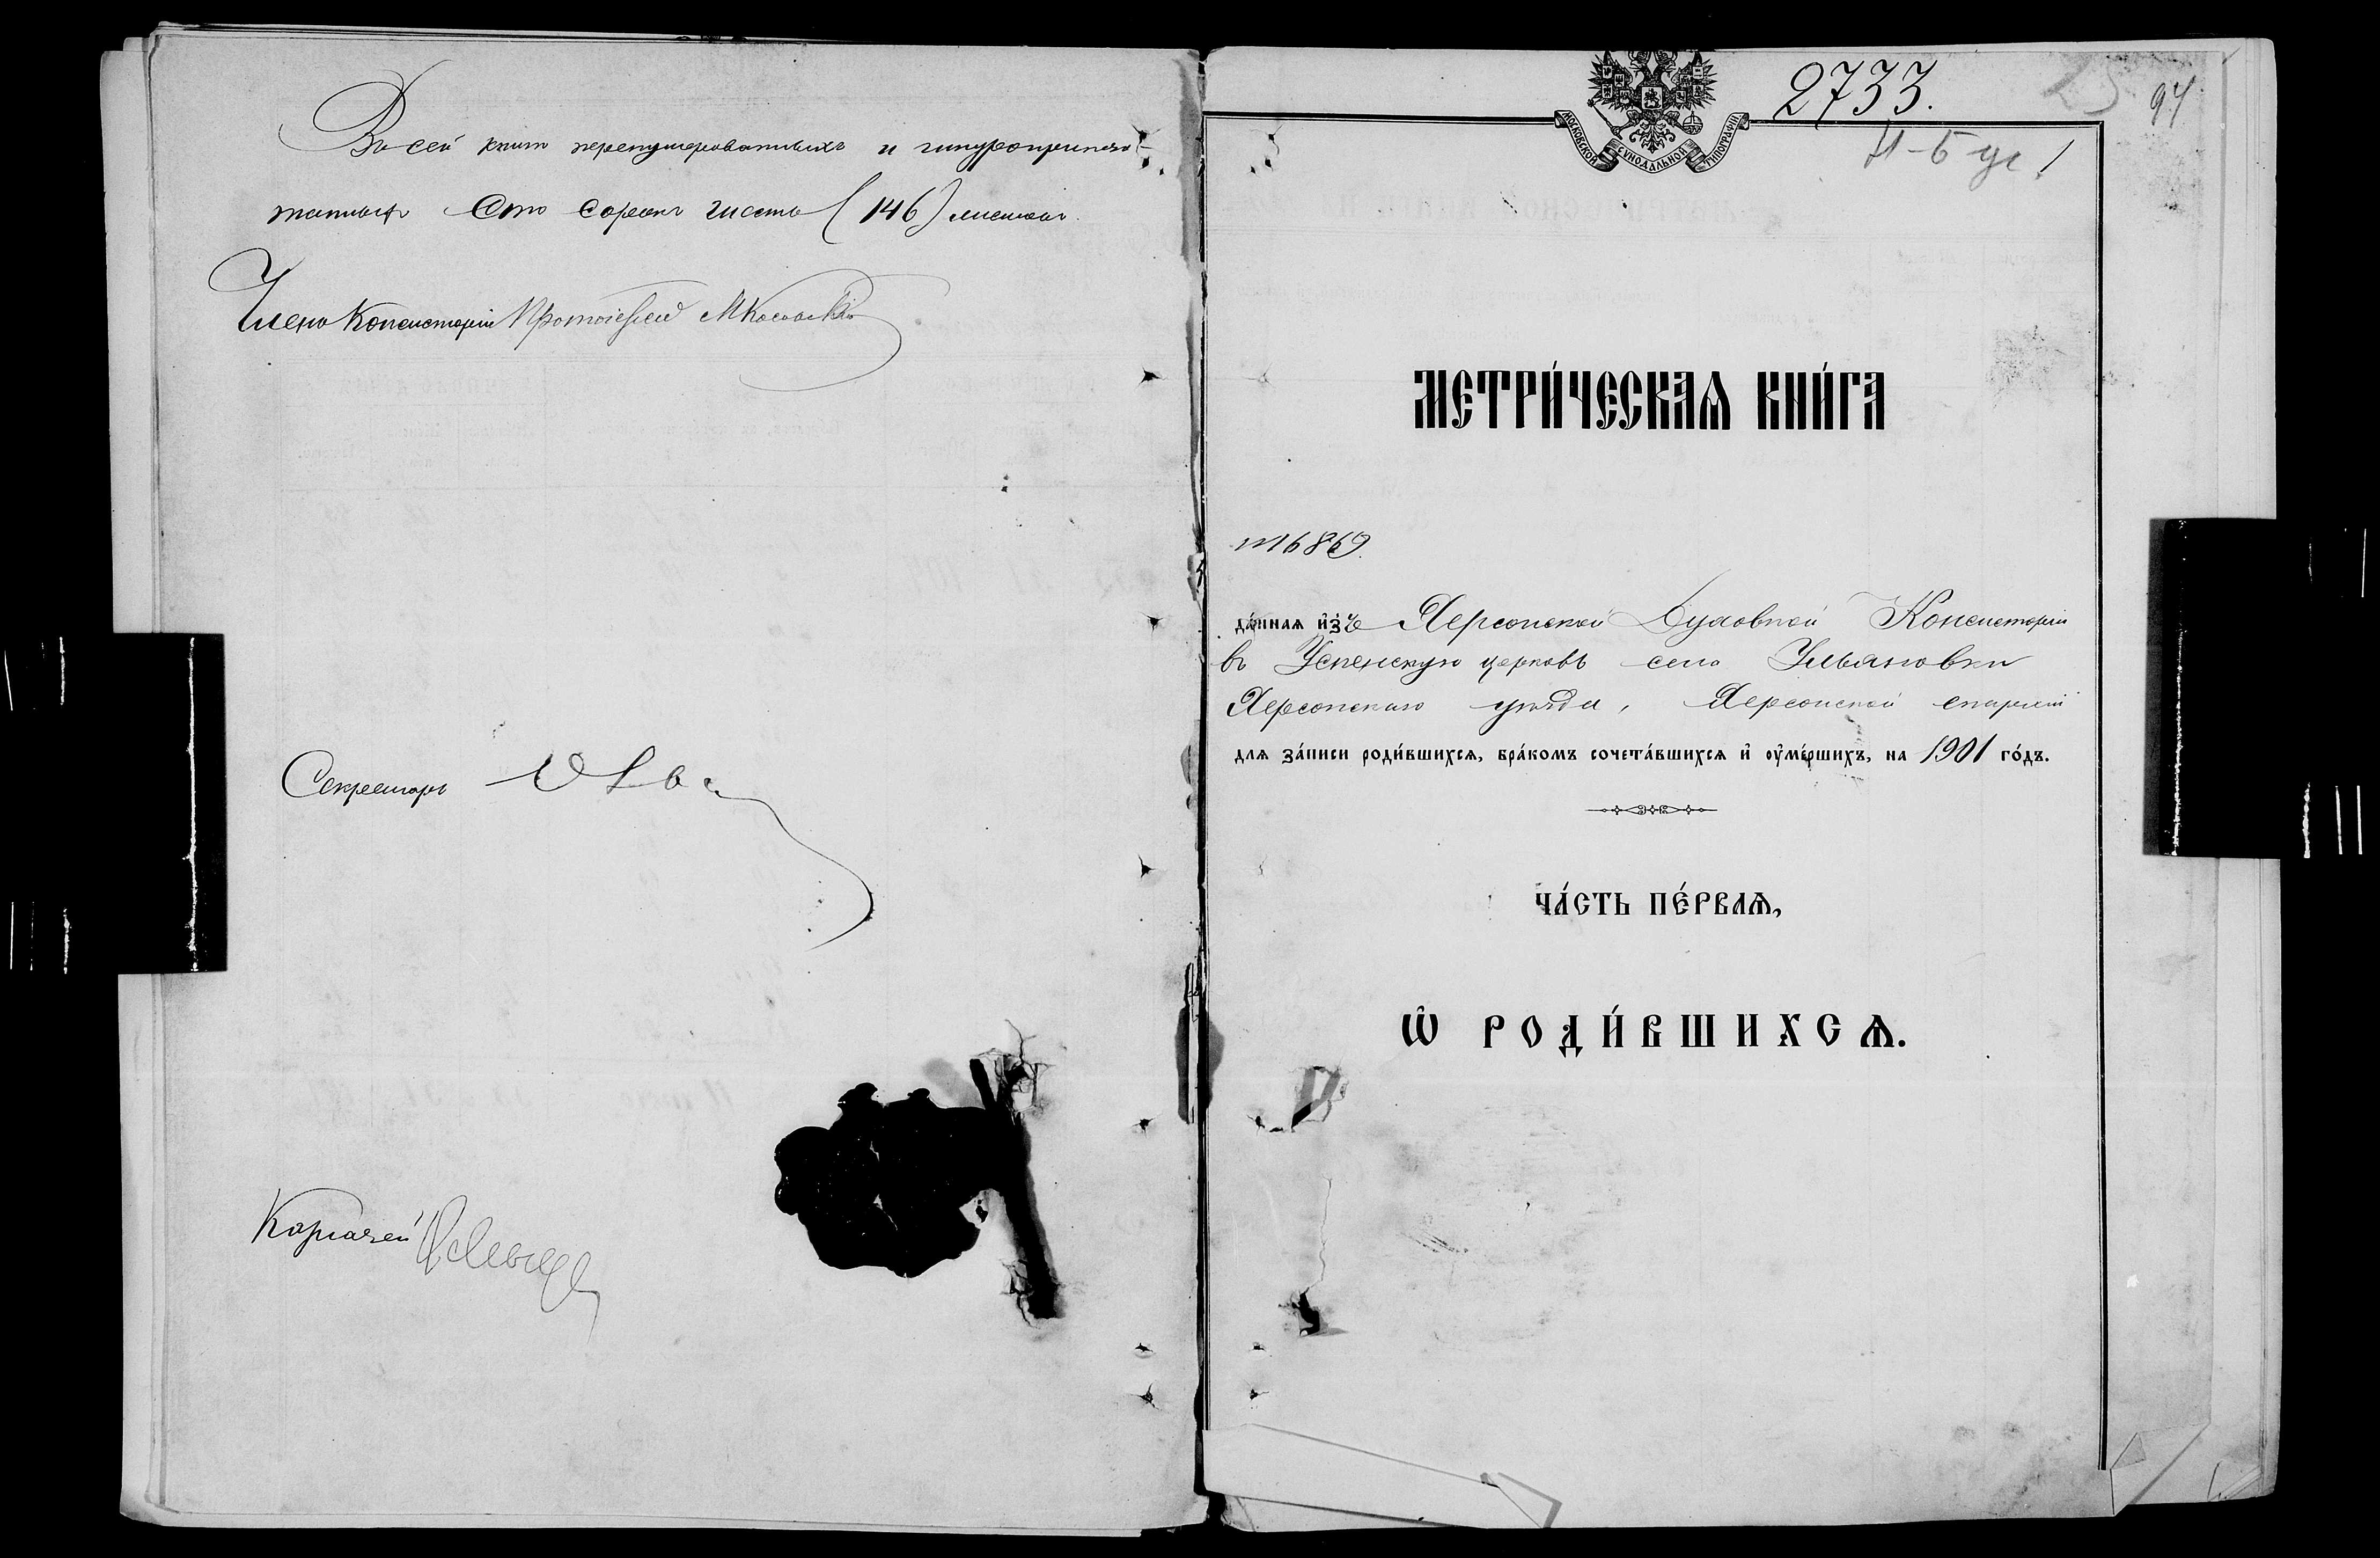 Въ сей книгѣ перенумерованныхъ и шнуроприпеча-
танныхъ Сто сорокъ шесть (146) листовъ.
Членъ Консисторіи Протоіерей
Секретарь
Казначей
2733.
94
МОСКОВСКОЙ СѴНОДАЛЬНОЙ ТИПОГРАФІИ
1
МЕТРИ́ЧЕСКАѦ КНИ́ГА
№ 16869.
да́ннаѧ и҆зъ Херсонской Духовной Консисторіи
въ Успенскую церковь села Ульяновки
Херсонскаго уѣзда, Херсонской епархіи
длѧ за́писи роди́вшихсѧ, бра́комъ сочета́вшихсѧ и҆ оу҆ме́ршихъ, на 1901 го́дъ.
ЧА́СТЬ ПЕ́РВАѦ,
Ѽ РОДИ́ВШИХСѦ.